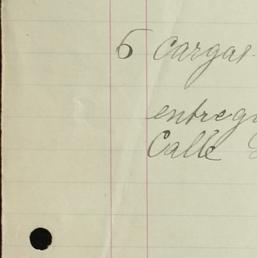 6 cargas
entreg
Calle